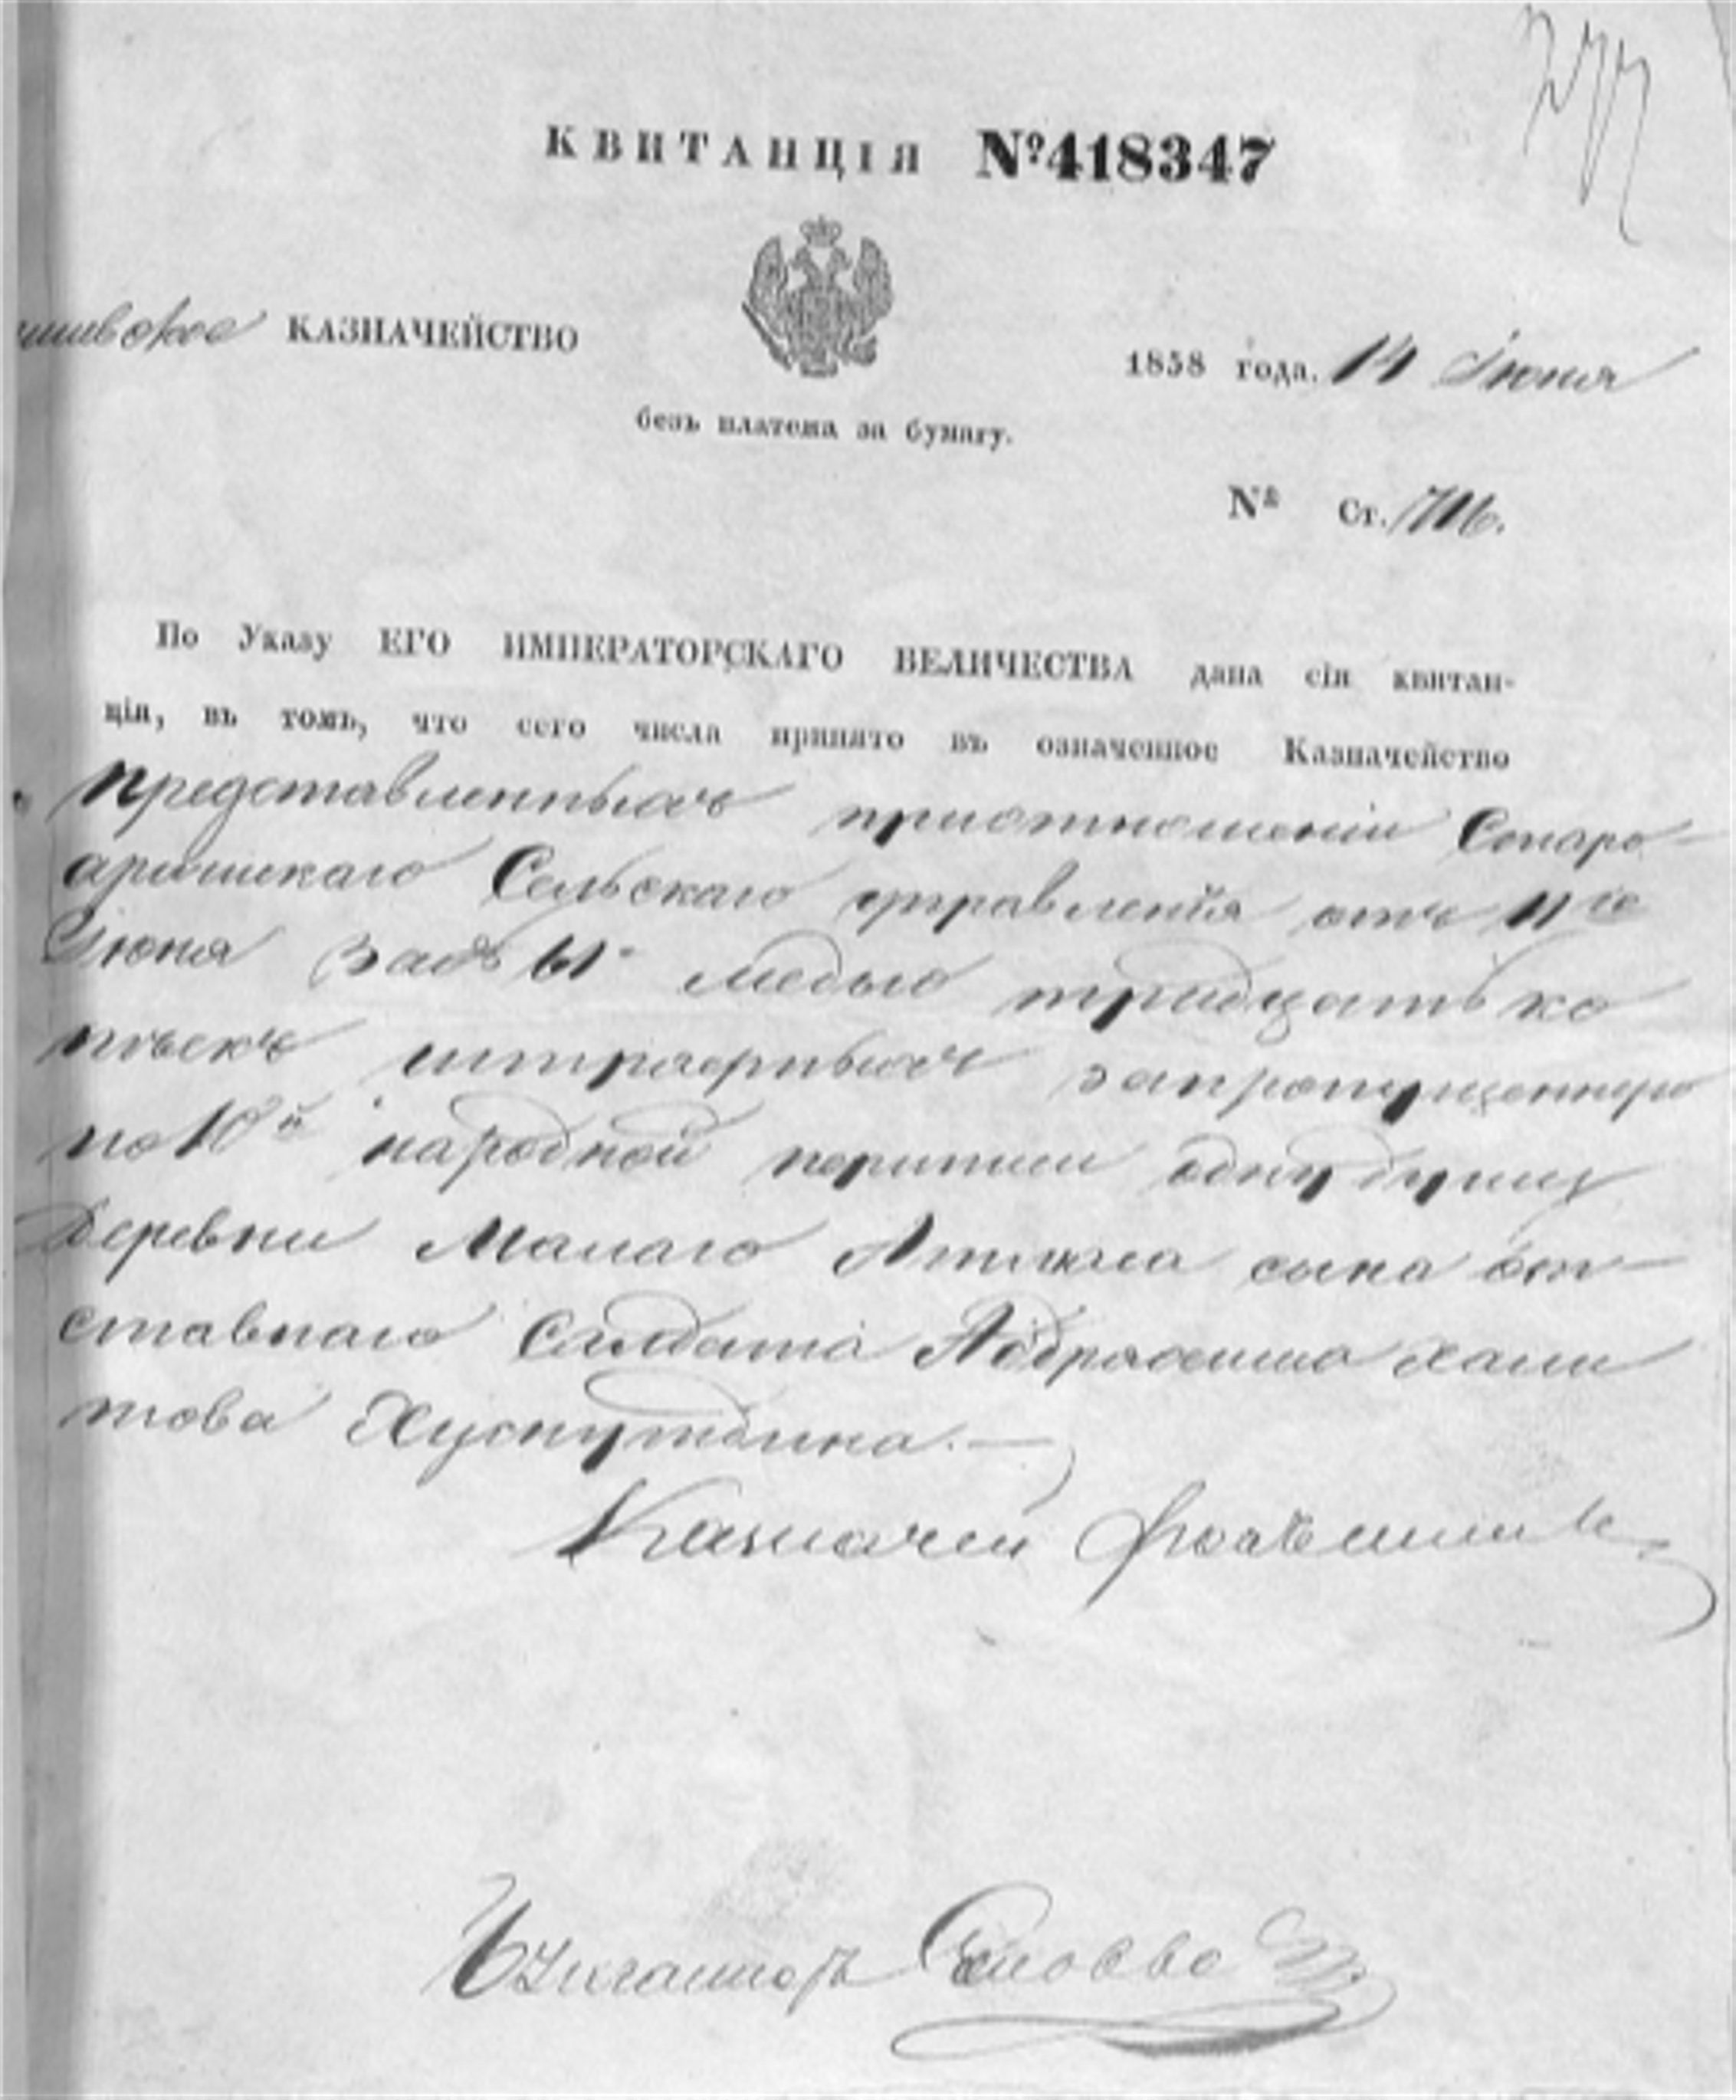 277
КВИТАНЦІЯ №418347
КАЗНАЧЕЙСТВО
1858 года. 14 Іюня
безъ платежа за бумагу.
№ Ст.
По Указу ЕГО ИМПЕРАТОРСКАГО ВЕЛИЧЕСТВА дана сія квитан-
ція, въ томъ, что сего числа принято въ означенное Казначейство
представленныхъ приотношеніи Старо
Сельскаго управленія отъ 11го
Іюня за № 61 медью тридцать ко
пѣекъ штрафныхъ запропущенную
по 10й народной переписи одну душу
Деревни Малаго сына от-
ставнаго Солдата Хали
това Хуснутдина.—
Казначей
Соловьевъ